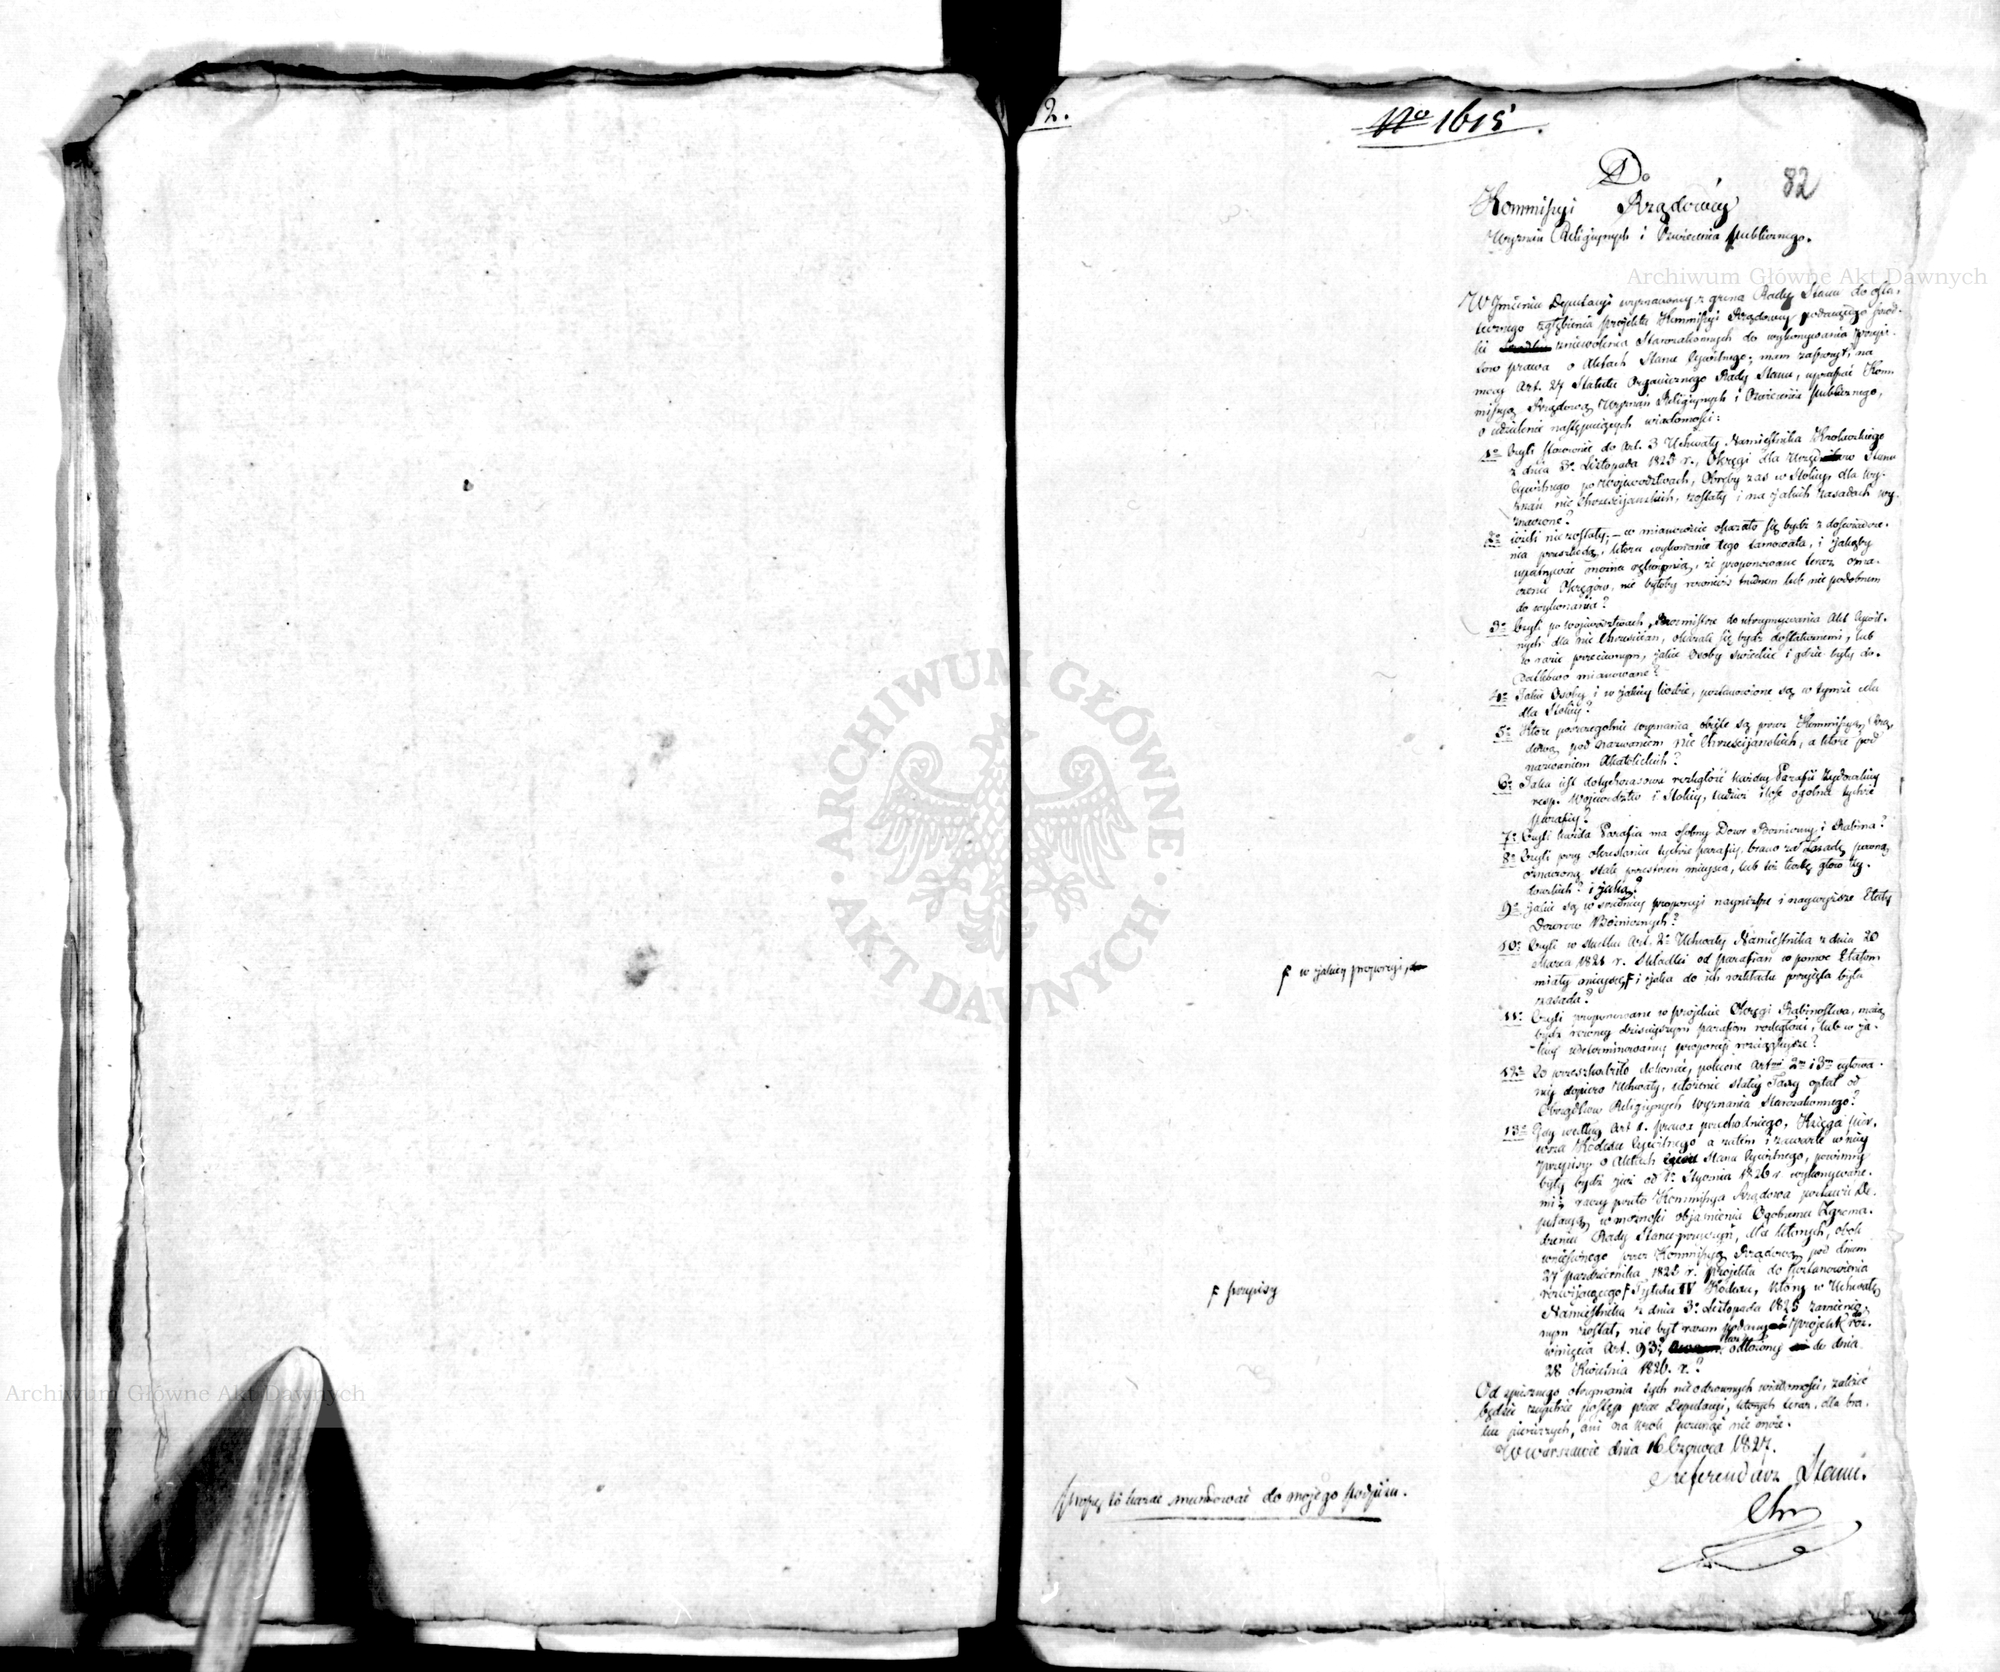 2.
No 1615.
82
Do
Kommissyi Rządowéy
Wyznań Religiynych i Oświecenia publicznego.
W Imieniu Deputacyi wyznaczonéy z grona Rady Stanu do osta-
tecznego zgłębienia projektu Kommissyi Rządowéy podaiącego środ-
ki zniewolenia Starozakonnych do wykonywania przepi-
sów prawa o Aktach Stanu Cywilnego; mam zaszczyt, na
mocy Art. 27 Statutu Organicznego Rady Stanu, upraszać Kom-
missyą Rządową Wyznań Religiynych i Oświecenia publicznego,
o udzielenie następuiących wiadomości:
1o Czyli stosownie do Art. 3 Uchwały Namiestnika Królewskiego
z dnia 3o Listopada 1825 r., Okręgi dla Urzędników Stanu
Cywilnego po Województwach, Obręby zaś w Stolicy, dla Wy-
znań nie Chrześcijańskich, zostały i na jakich zasadach wy-
znaczone?
2o ieżeli nie zostały, – w mianowicie okazało się bydź z doświadcze-
nia przeszkodą, która wykonanie tego tamowała, i jakąby
upatrywać można rękoymią, że proponowane teraz ozna-
czenie Okręgów, nie byłoby również trudnem lub nie podobnem
do wykonania?
3o Czyli po Województwach, Burmistrze do utrzymywania Akt Cywil-
nych dla nie Chrześcian, okazali się bydź dostatecznemi, lub
w razie przeciwnym, jakie Osoby świeckie i gdzie były do-
datkowo mianowane?
4o Jakie Osoby i w jakiey liczbie, postanowione są w tymże celu
dla Stolicy?
5o Które poszczególnie wyznania objęte są przez Kommissyą Rzą-
dową pod nazwaniem nie Chrześcijańskich, a które pod
nazwaniem Akatolickich?
6o Jaka iest dotychczasowa rozległość każdey Parafii Żydowskiey
resp. Województw i Stolicy, tudzież ilość ogólna tychże
parafiy?
7o Czyli każda Parafia ma osobny Dozór Bóżniczny i Rabina?
8o Czyli przy określaniu tychże parafiy, brano za Zasadę pewną
oznaczoną stale przestrzeń mieysca, lub też liczbę głów ży-
dowskich? i jaką?
9o Jakie są w średniey proporcyi nayniższe i naywyższe Etaty
Dozorów Bóżnicznych?
10o Czyli w skutku Art. 2o Uchwały Namiestnika z dnia 20
Marca 1821 r. Składki od parafian w pomoc Etatom
miały mieysce, F i jaka do ich rozkładu przyjęta była
zasada?
F w jakiey proporcyi,
11o Czyli proponowane w projekcie Okręgi Rabinostwa, maią
bydź równey dzisieyszym parafiom rozległości, lub w ja-
kiey zdeterminowaney proporcyi rozciągleysze?
12o Co przeszkodziło dokonać, polecone Artmi 2m i 3m cytowa-
ney dopiero Uchwały, ułożenie stałey Taxy opłat od
Obrządków Religiynych wyznania Starozakonnego?
13o Gdy według Art 1. prawa przechodniego, Księga pier-
wsza Kodexu Cywilnego a zatém i zawarte w niey
przepisy o Aktach Stanu Cywilnego, powinny
były bydź już od 1o Stycznia 1826 r. wykonywane-
mi; raczy przeto Kommissya Rządowa postawić De-
putacyą w możności objaśnienia Ogólnemu Zgroma-
dzeniu Rady Stanu przyczyn, dla których, obok
wniesionego przez Kommissyą Rządową pod dniem
27 października 1825 r. projektu do Postanowienia
rozwijaiącego F Tytułu IV Kodexu, który w Uchwałę
Namiestnika z dnia 3o Listopada 1825 zamienio-
nym został, nie był razem podany projekt roz-
winięcia Art. 93; odłożony do dnia
28 Kwietnia 1826. r.?
F przepisy
Od spiesznego otrzymania tych nieodzownych wiadomości, zależeć
będzie zupełnie postęp prac Deputacyi, których teraz, dla bra-
ku pierwszych, ani na krok posunąć nie może.
W Warszawie dnia 16 Czerwca 1827.
Referendarz Stanu.
proszę to kazać mundować do mojego podpisu.
Archiwum Główne Akt Dawnych
Archiwum Główne Akt Dawnych
ARCHIWUM GŁÓWNE · AKT DAWNYCH ·